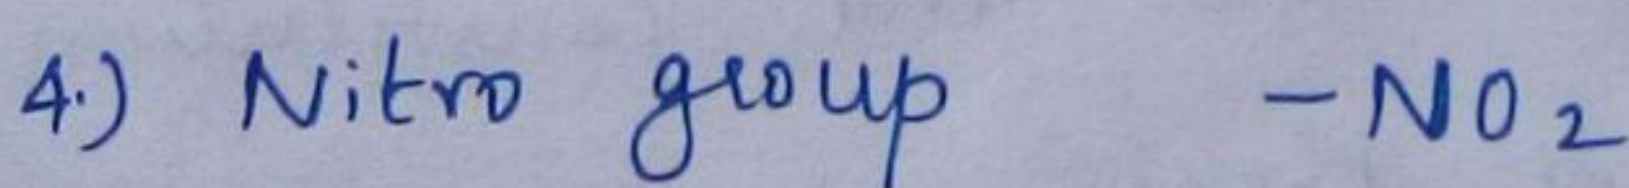 4.) Nitro group -NO₂